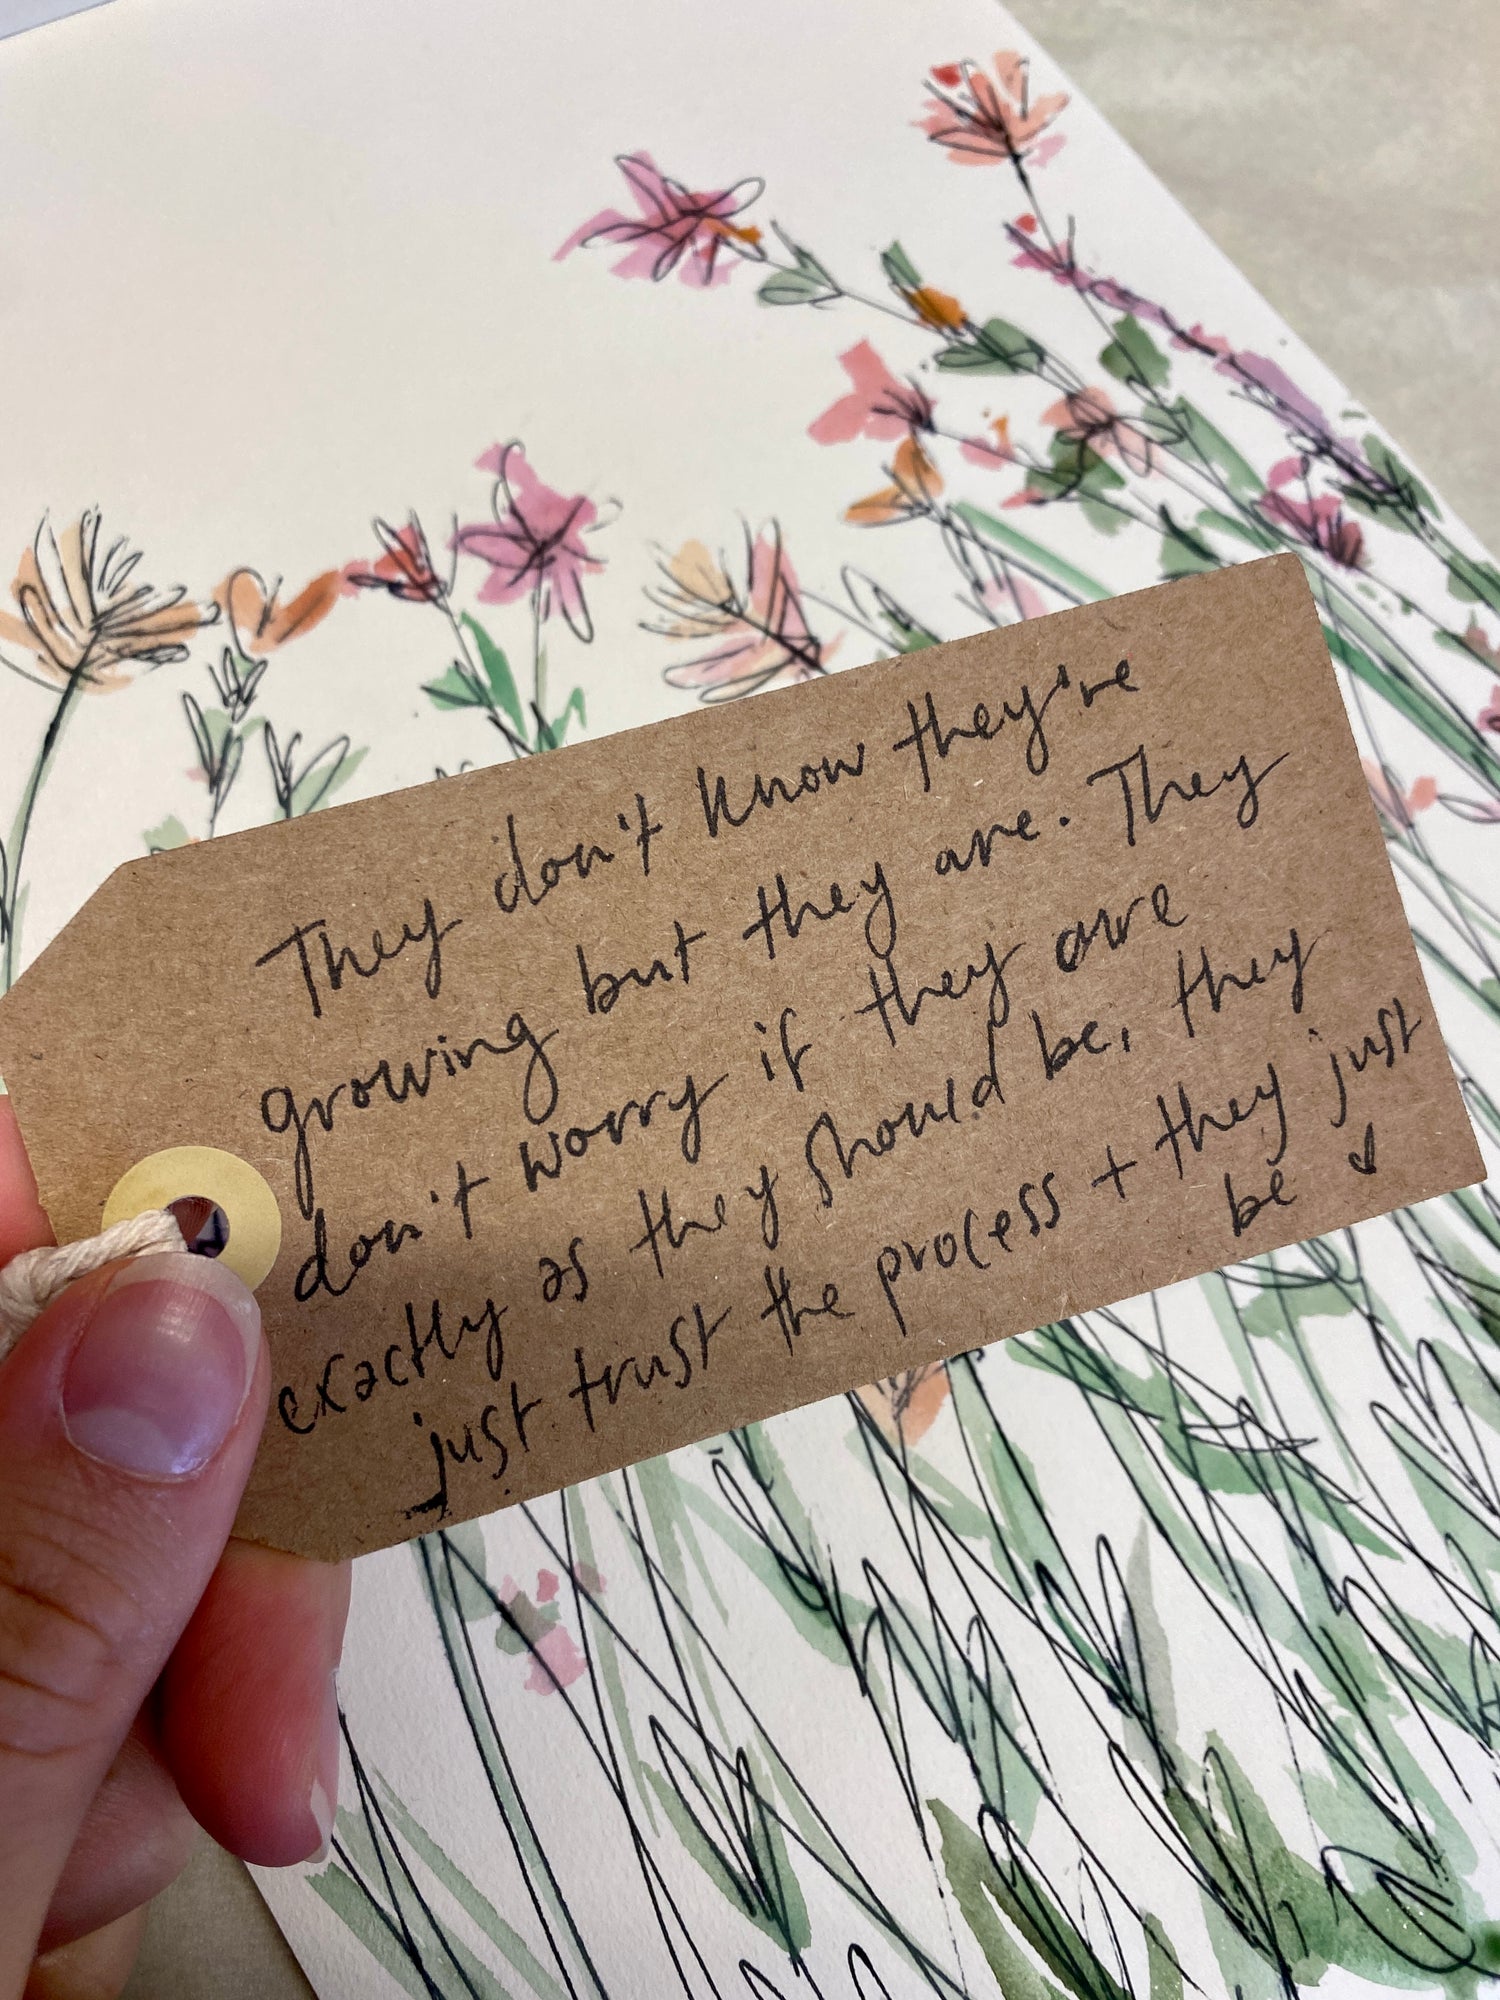 They don't know they're
growing but they are. They
don't worry if they are
exactly as they should be, they
just trust the process + they just
be